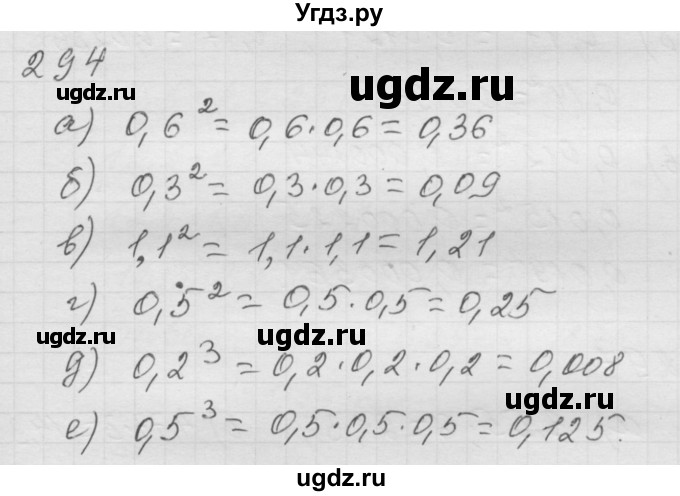 Угдз.ру
294
ugdz.ru
ugdz.ru
а) 0,6² = 0,6·0,6 = 0,36
б) 0,3² = 0,3·0,3 = 0,09
в) 1,1² = 1,1·1,1 = 1,21
г) 0,5² = 0,5·0,5 = 0,25
ugdz.ru
ugdz.ru
д) 0,2³ = 0,2·0,2·0,2 = 0,008
ugdz.ru
е) 0,5³ = 0,5·0,5·0,5 = 0,125.
ugdz.ru